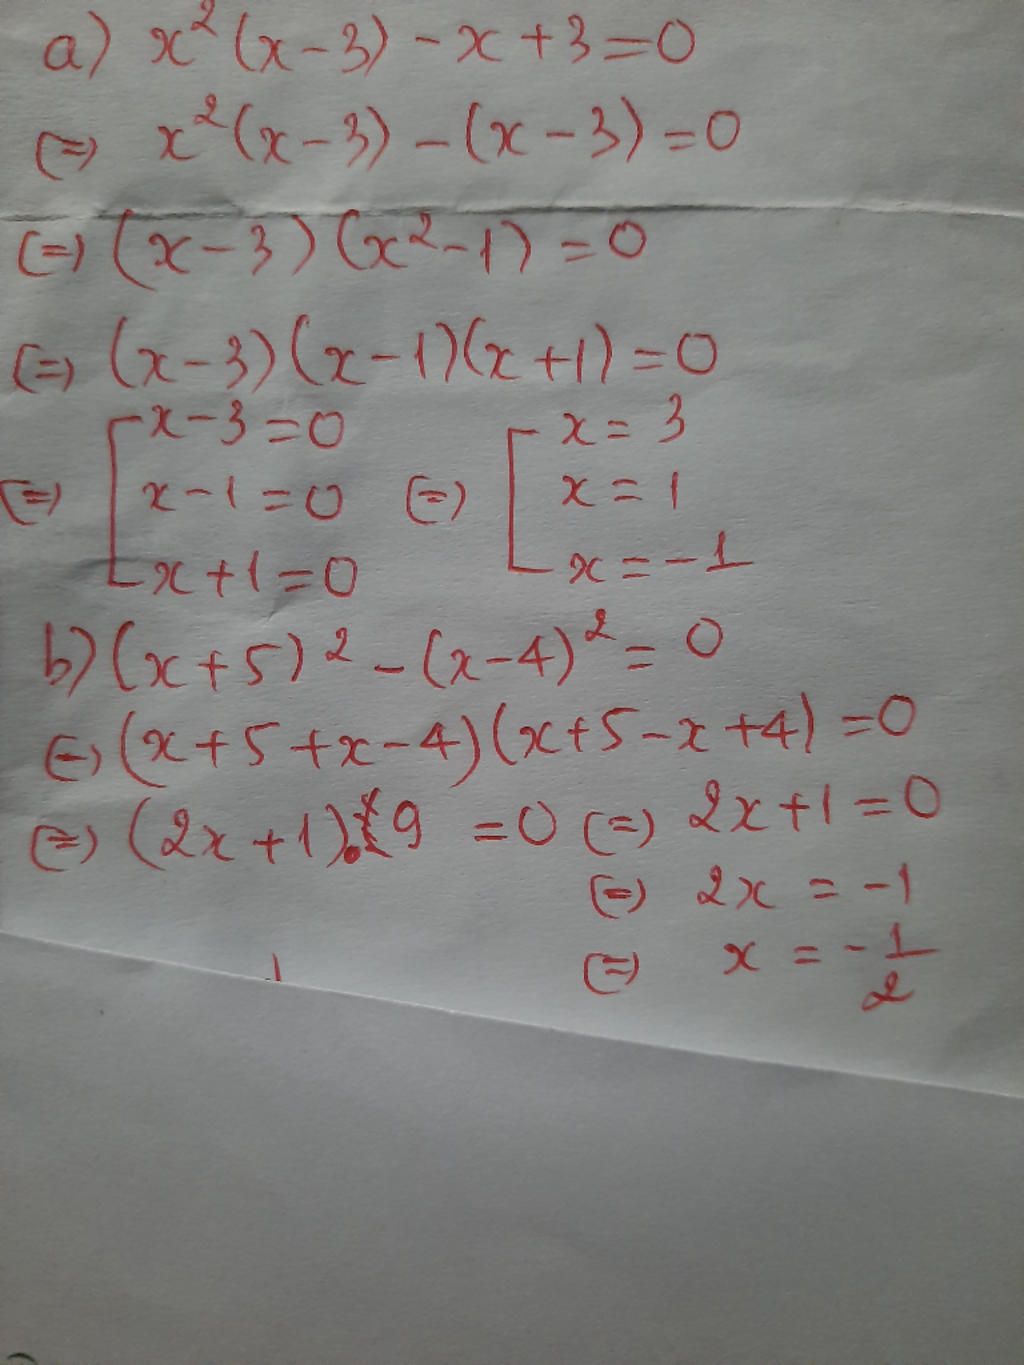 a) x²(x-3) - x + 3 = 0
(=) x²(x-3) - (x-3) = 0
(=) (x-3)(x²-1) = 0
(=) (x-3)(x-1)(x+1) = 0
(=) [ x-3=0 (=) [ x = 3
x-1=0 x = 1
x+1=0 x = -1
b) (x+5)² - (x-4)² = 0
(=) (x+5+x-4)(x+5-x+4) = 0
(=) (2x+1).9 = 0 (=) 2x+1=0
(=) 2x = -1
(=) x = -1/2